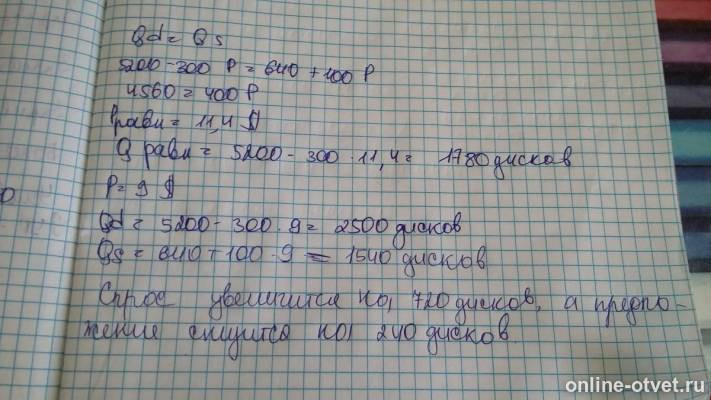 Qd = Qs
5200-300 P = 640 + 100 P
4560 = 400 P
Pравн = 11,4 $
Q равн = 5200 - 300 · 11,4 = 1780 дисков
P = 9 $
Qd = 5200 - 300 · 9 = 2500 дисков
Qs = 640 + 100 · 9 = 1540 дисков
Спрос увеличится на 720 дисков, а предло-
жение снизится на 240 дисков
online-otvet.ru